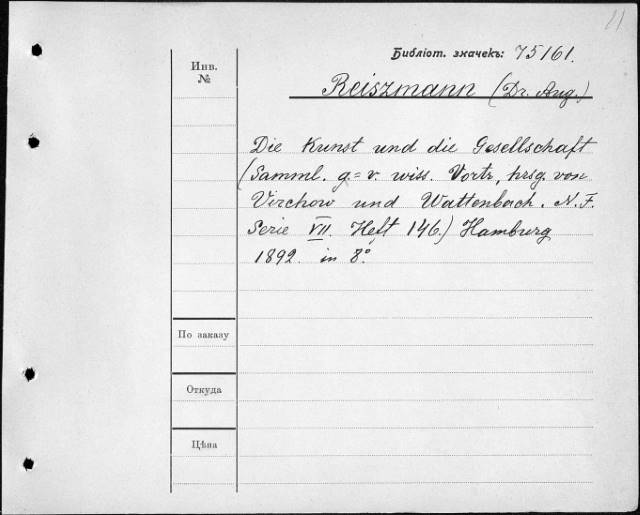 11
Библіот. значекъ: 75161.
Инв.
№
Reiszmann (Dr. Aug.)
Die Kunst und die Gesellschaft
(Samml. g=v. wiss. Vortr., hrsg. von
Virchow und Wattenbach. N. F.
Serie VII. Heft 146.) Hamburg
1892. in 8°.
По заказу
Откуда
Цѣна